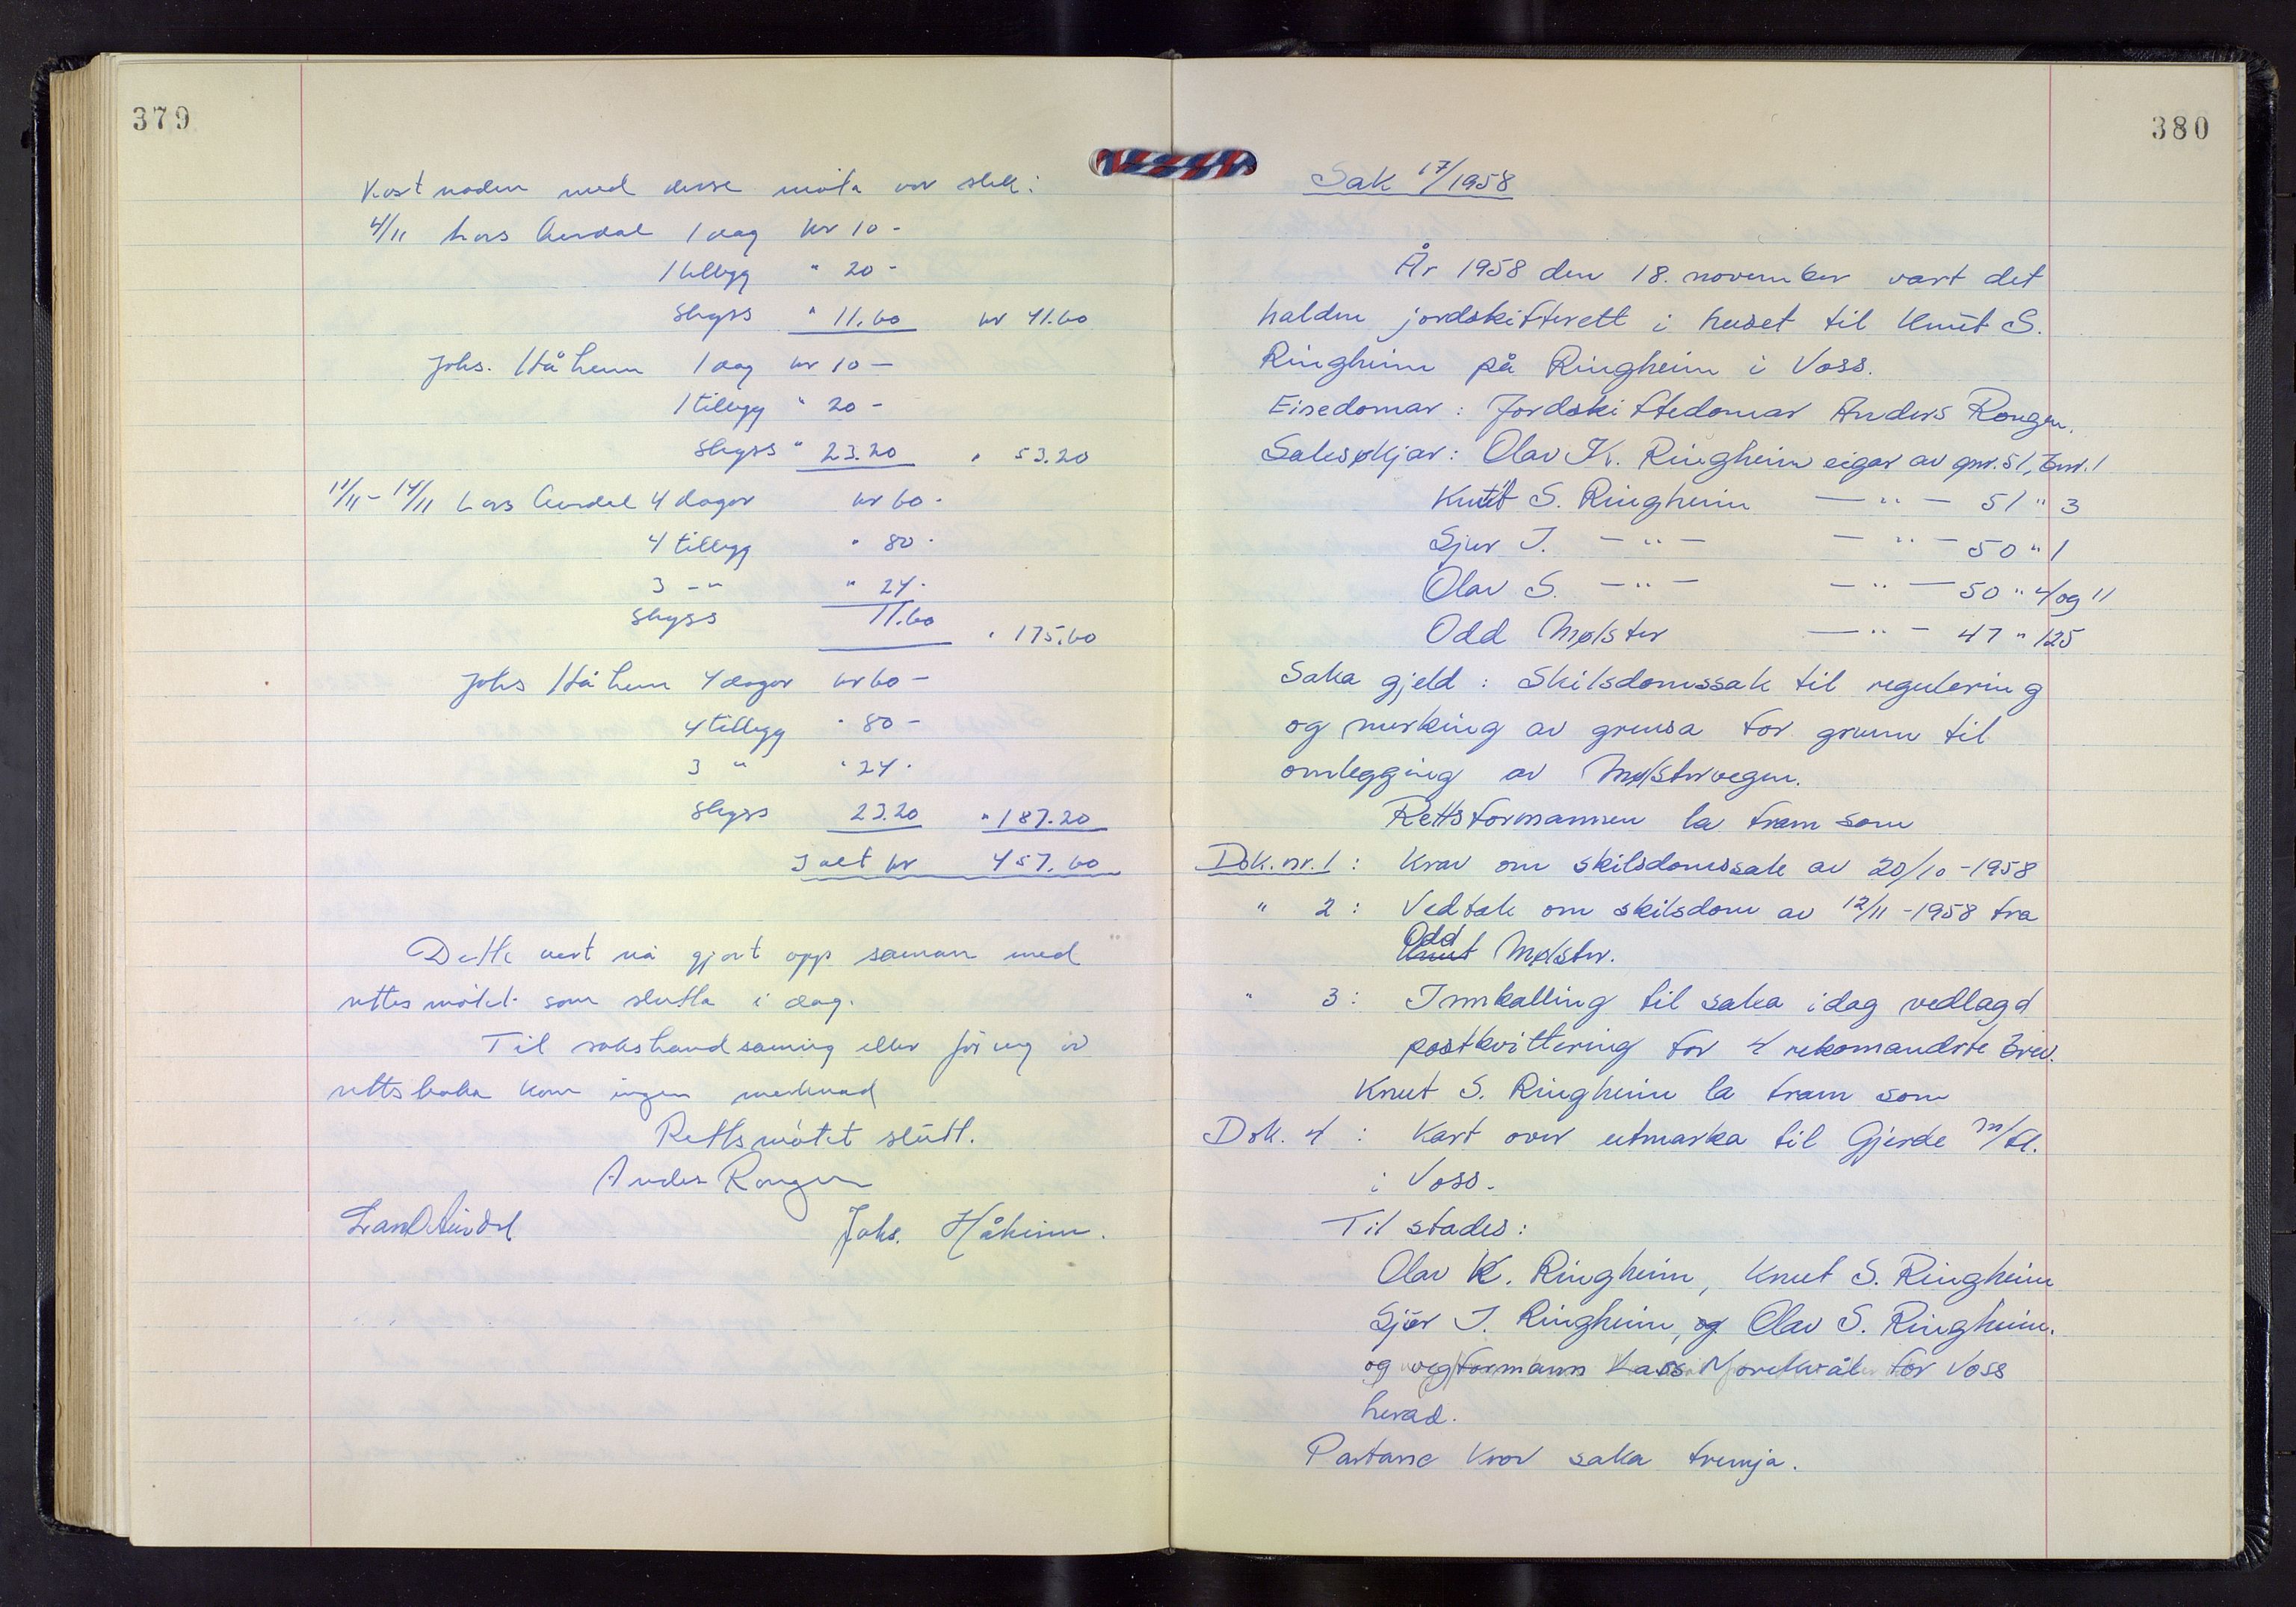 379
Kostnaden med desse møta var slik:
4/11 Lars Aurdal 1 dag kr 10 -
1 tillegg " 20 -
Skyss " 11.60 kr 41.60
Johs. Håheim 1 dag kr 10 -
1 tillegg " 20 -
Skyss " 23.20 " 53.20
11/11 - 14/11 Lars Aurdal 4 dagar kr 60 -
4 tillegg " 80 -
3 - " " 24 -
Skyss 11.60
" 175.60
Johs Håheim 4 dagar kr 60 -
4 tillegg " 80 -
3 " " 24 -
Skyss 23.20 " 187.20
I alt kr 457.60
Dette vert nå gjort opp saman med
rettsmøtet som slutta i dag.
Til sakshandsaming eller føring av
rettsboka kom ingen merknad
Rettsmøtet slutt.
Anders Rongen
Lars Aurdal Johs. Håheim.
380
Sak 17/1958
År 1958 den 18. november vart det
halden jordskifterett i huset til Knut S.
Ringheim på Ringheim i Voss.
Einedomar: Jordskiftedomar Anders Rongen.
Saksøkjar: Olav K. Ringheim eigar av gnr. 51, bnr. 1
Knut S. Ringheim — " — 51 " 3
Sjur J. — " — — " — 50 " 1
Olav S. — " — — " — 50 " 4 og 11
Odd Mølster — " — 47 " 125
Saka gjeld: Skilsdomssak til regulering
og merking av grensa for grunn til
omlegging av Mølstervegen.
Rettsformannen la fram som
Dok. nr. 1: Krav om skilsdomssak av 20/10 - 1958
" 2: Vedtak om skilsdom av 12/11 - 1958 fra
Odd
Knut Mølster.
" 3: Innkalling til saka idag vedlagd
postkvittering for 4 rekomanderte brev.
Knut S. Ringheim la fram som
Dok. 4: Kart over utmarka til Gjerde m/fl.
i Voss.
Til stades:
Olav K. Ringheim, Knut S. Ringheim
Sjur J. Ringheim, og Olav S. Ringheim.
og vegformann Lars Mørkve for Voss
herad.
Partane krov saka fremja.